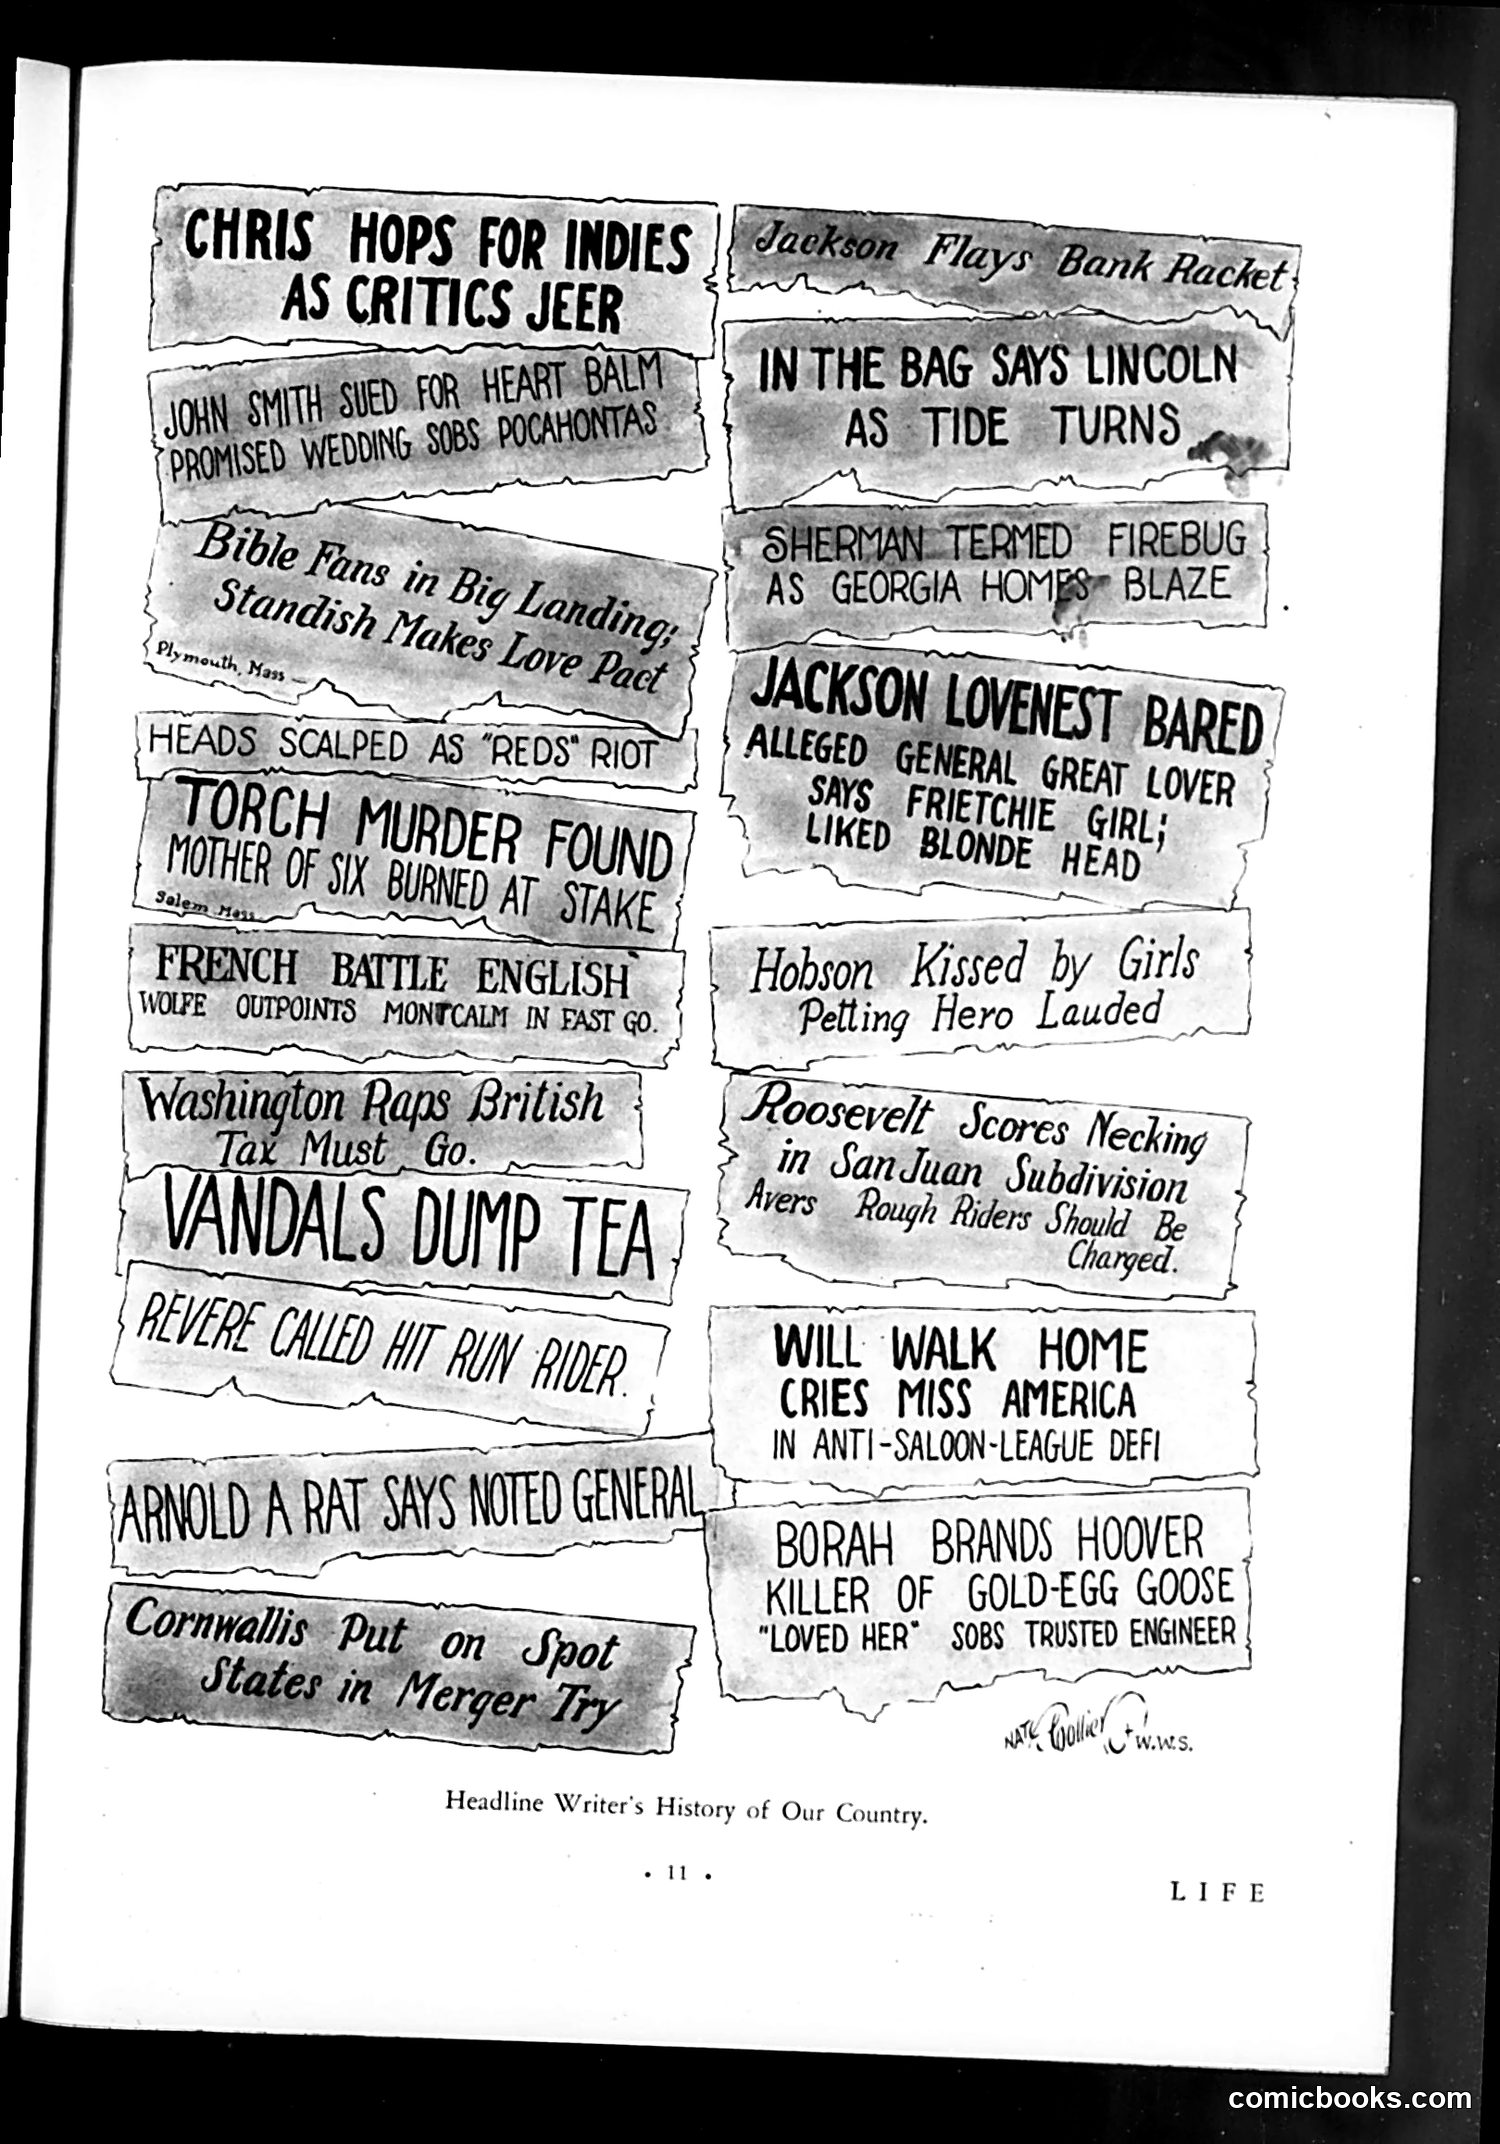 CHRIS HOPS FOR INDIES
AS CRITICS JEER
JOHN SMITH SUED FOR HEART BALM
PROMISED WEDDING SOBS POCAHONTAS
Bible Fans in Big Landing;
Standish Makes Love Pact
Plymouth, Mass —
HEADS SCALPED AS "REDS" RIOT
TORCH MURDER FOUND
MOTHER OF SIX BURNED AT STAKE
Salem Mass
FRENCH BATTLE ENGLISH
WOLFE OUTPOINTS MONTCALM IN FAST GO.
Washington Raps British
Tax Must Go.
VANDALS DUMP TEA
REVERE CALLED HIT RUN RIDER.
ARNOLD A RAT SAYS NOTED GENERAL
Cornwallis Put on Spot
States in Merger Try
Jackson Flays Bank Racket
IN THE BAG SAYS LINCOLN
AS TIDE TURNS
SHERMAN TERMED FIREBUG
AS GEORGIA HOMES BLAZE
JACKSON LOVENEST BARED
ALLEGED GENERAL GREAT LOVER
SAYS FRIETCHIE GIRL;
LIKED BLONDE HEAD
Hobson Kissed by Girls
Petting Hero Lauded
Roosevelt Scores Necking
in San Juan Subdivision
Avers Rough Riders Should Be
Charged.
WILL WALK HOME
CRIES MISS AMERICA
IN ANTI-SALOON-LEAGUE DEFI
BORAH BRANDS HOOVER
KILLER OF GOLD-EGG GOOSE
"LOVED HER" SOBS TRUSTED ENGINEER
NATE Collier + W.W.S.
Headline Writer's History of Our Country.
• 11 •
LIFE
comicbooks.com